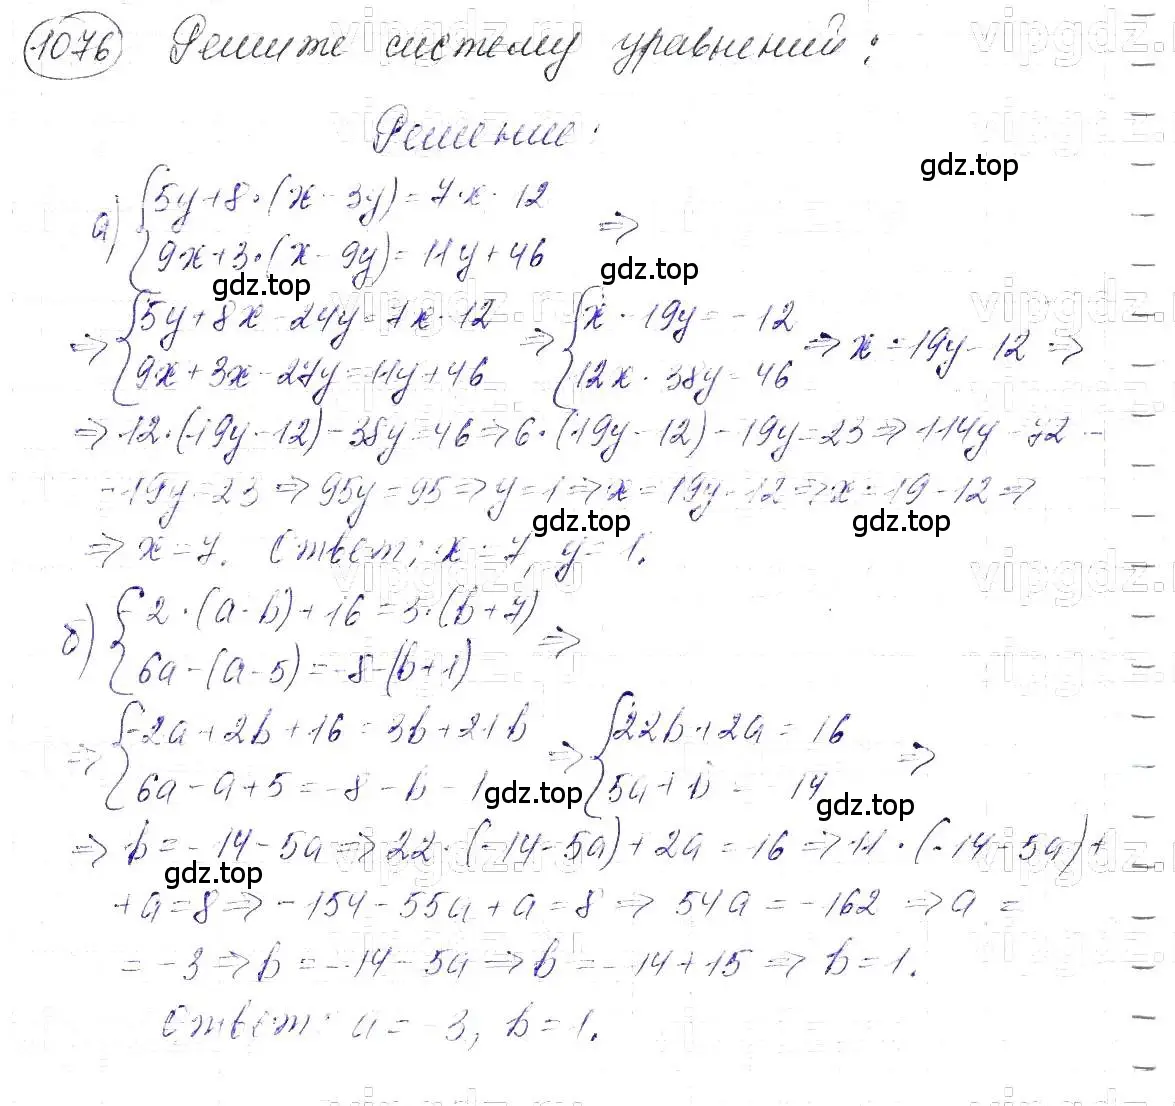 1076 Решите систему уравнений:
Решение:
gdz.top
а) { 5y+8·(x-3y)=7·x-12
{ 9x+3·(x-9y)=11y+46 =>
gdz.top gdz.top
=> { 5y+8x-24y=7x-12 => { x-19y=-12 => x=19y-12 =>
{ 9x+3x-27y=11y+46 { 12x-38y=46
=> 12·(19y-12)-38y=46 => 6·(19y-12)-19y=23 => 114y-72-
-19y=23 => 95y=95 => y=1 => x=19y-12 => x=19-12 =>
gdz.top gdz.top
=> x=7. Ответ: x=7, y=1.
б) { -2·(a-b)+16=3·(b+7)
{ 6a-(a-5)=-8-(b+1) =>
=> { -2a+2b+16=3b+21b => { 22b+2a=16 =>
{ 6a-a+5=-8-b-1 { 5a+b=-14
gdz.top gdz.top
=> b=-14-5a => 22·(-14-5a)+2a=16 => 11·(-14-5a)+
gdz.top
+a=8 => -154-55a+a=8 => 54a=-162 => a=
=-3 => b=-14-5a => b=-14+15 => b=1.
Ответ: a=-3, b=1.